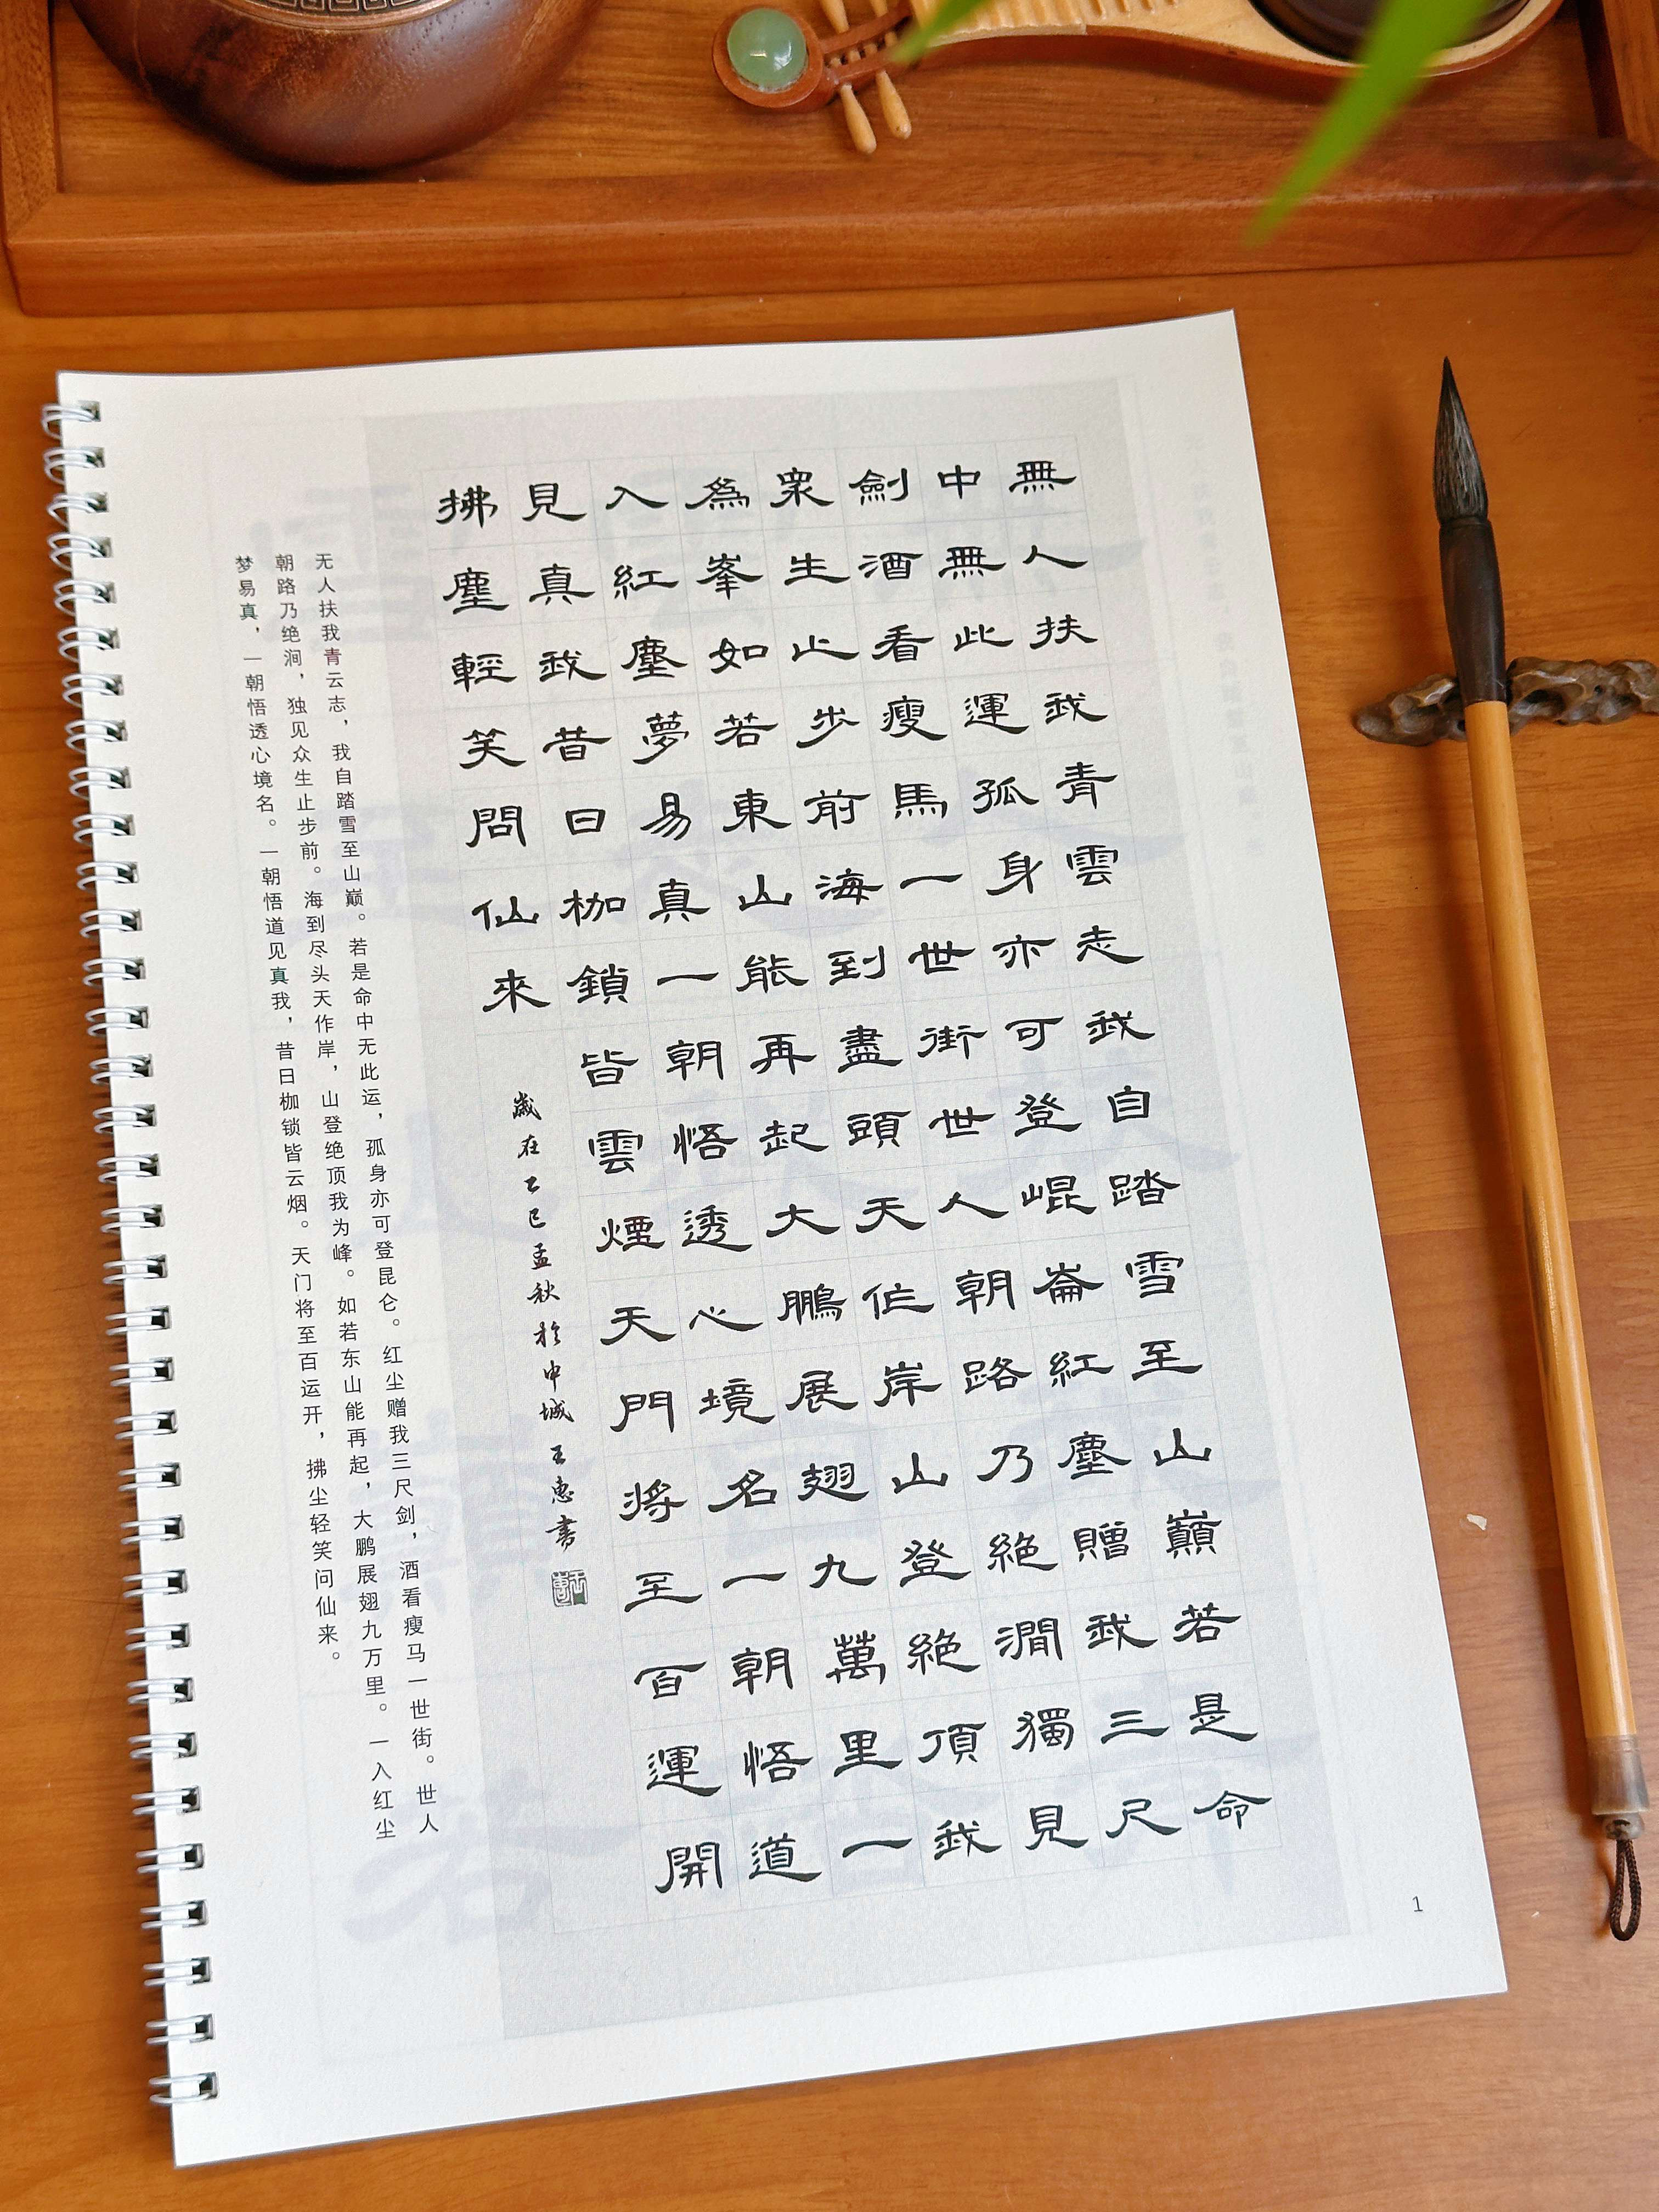 無人扶我青雲志我自踏雪至山巔若是命
中無此運孤身亦可登崐崙紅塵贈我三尺
劍酒看瘦馬一世街世人朝路乃絕澗獨見
衆生止步前海到盡頭天作岸山登絕頂我
為峯如若東山能再起大鵬展翅九萬里一
入紅塵夢易真一朝悟透心境名一朝悟道
見真我昔日枷鎖皆雲煙天門將至百運開
拂塵輕笑問仙來
歲在乙巳孟秋於申城王惠書
无人扶我青云志，我自踏雪至山巅。若是命中无此运，孤身亦可登昆仑。红尘赠我三尺剑，酒看瘦马一世街。世人
朝路乃绝涧，独见众生止步前。海到尽头天作岸，山登绝顶我为峰。如若东山能再起，大鹏展翅九万里。一入红尘
梦易真，一朝悟透心境名。一朝悟道见真我，昔日枷锁皆云烟。天门将至百运开，拂尘轻笑问仙来。
1